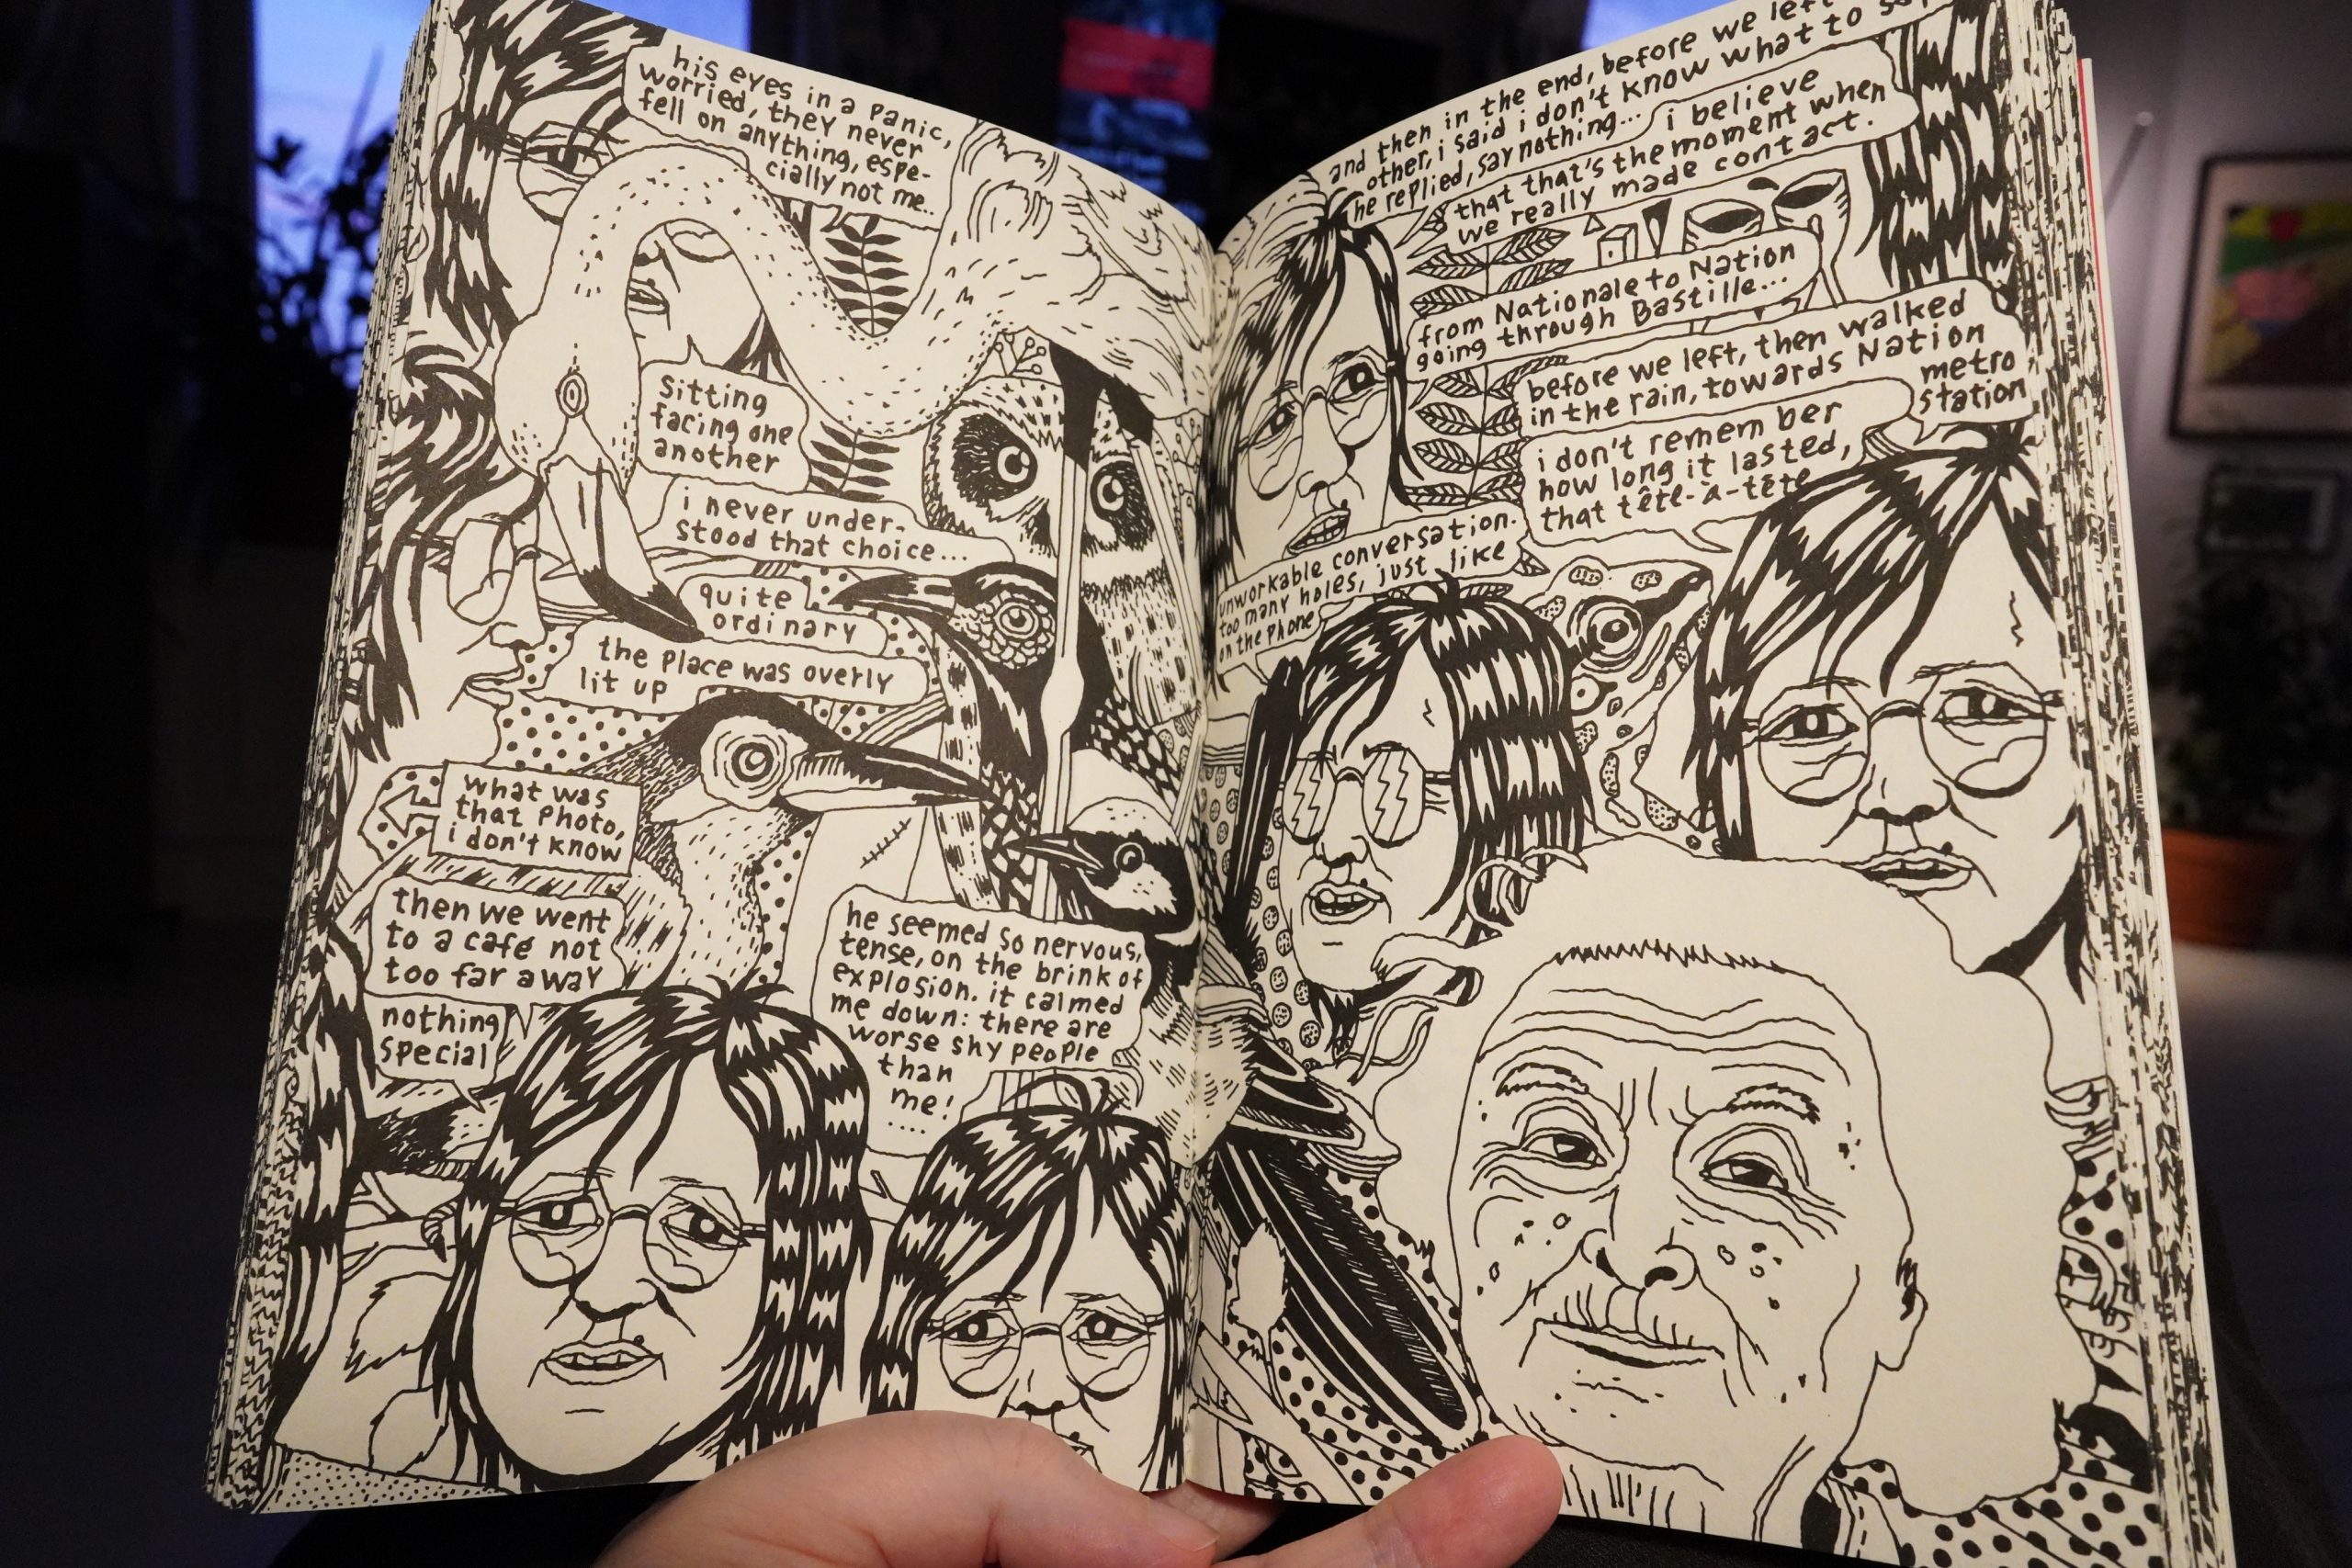 his eyes in a panic,
worried, they never
fell on anything, espe-
cially not me..
Sitting
facing one
another
i never under-
stood that choice...
quite
ordinary
the place was overly
lit up
what was
that photo,
i don't know
then we went
to a café not
too far away
nothing
special
he seemed so nervous,
tense, on the brink of
explosion. it calmed
me down: there are
worse shy people
than
me!
....
and then in the end, before we left
other, i said i don't know what to
he replied, say nothing...
i believe
that that's the moment when
we really made contact.
from Nationale to Nation
going through Bastille...
before we left, then walked
in the rain, towards Nation
metro
station
i don't remember
how long it lasted,
that tête-à-tête
unworkable conversation.
too many holes, just like
on the phone